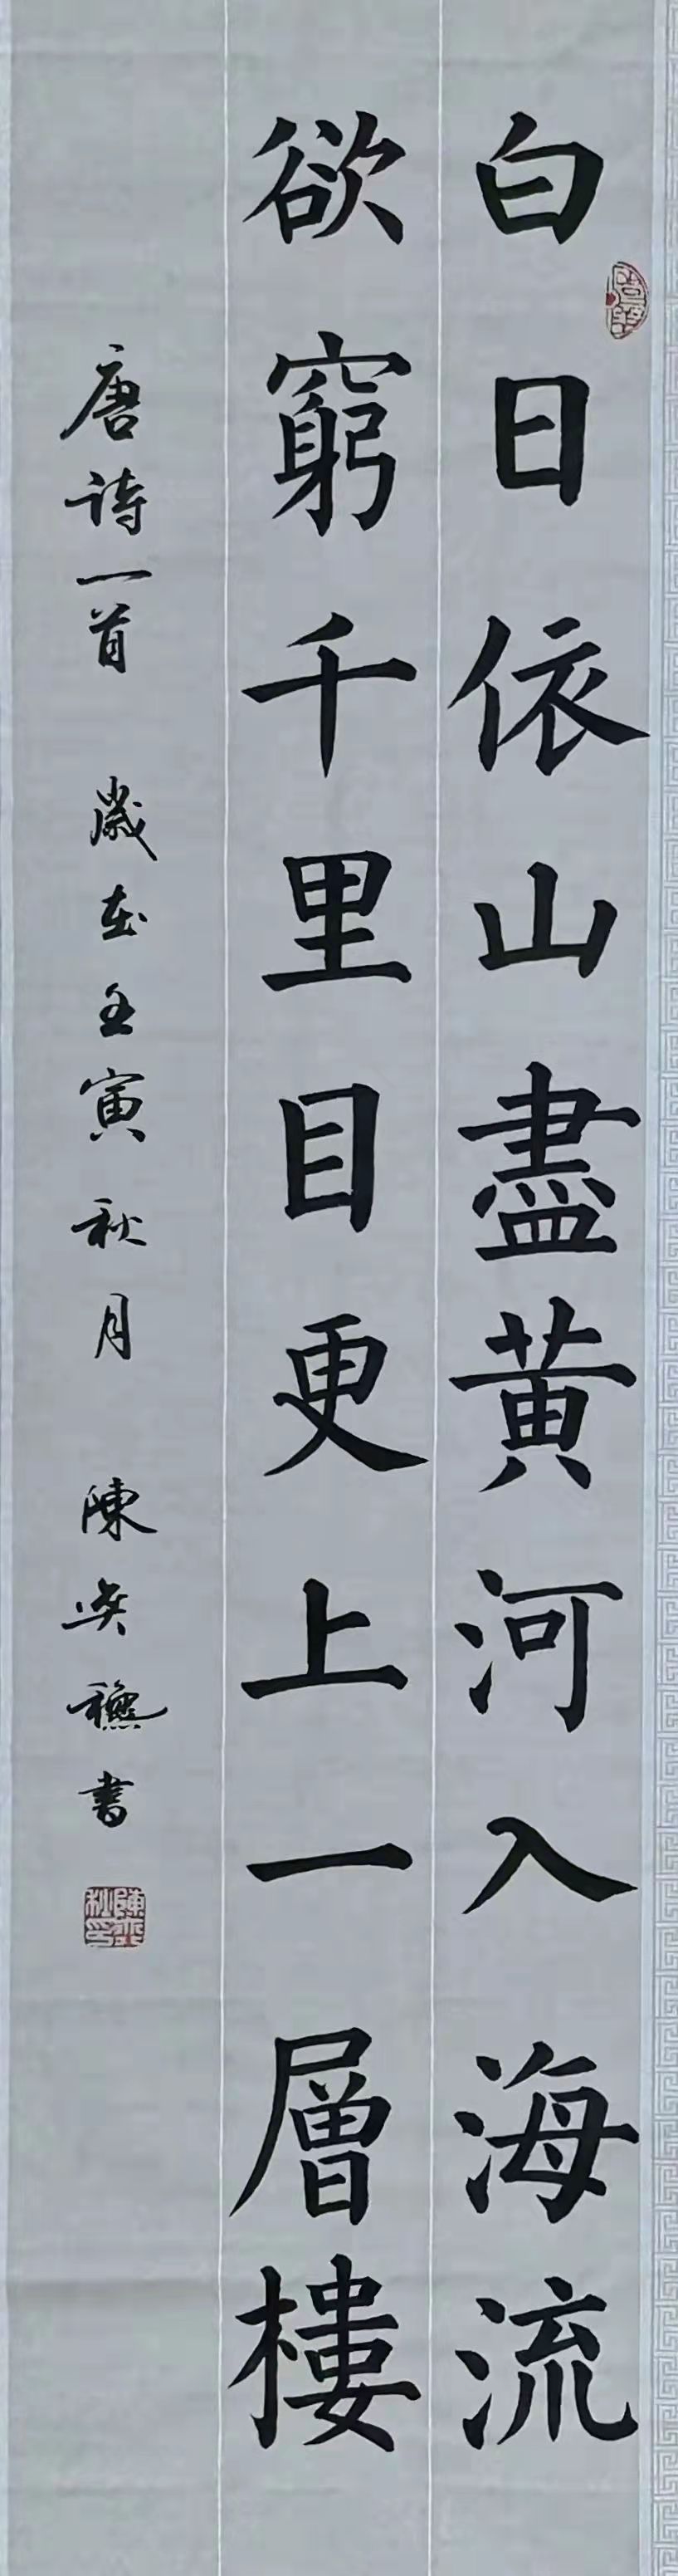 白日依山盡黃河入海流
欲窮千里目更上一層樓
唐诗一首 歲在壬寅秋月 陳奕書
陳奕秋印